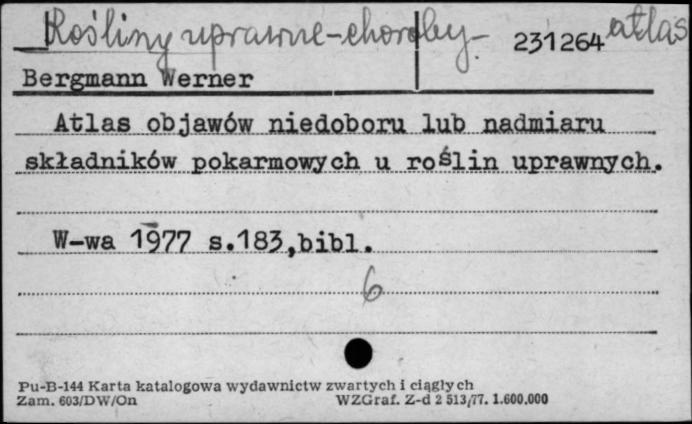 Rośliny uprawne-choroby- atlas
231264
Bergmann Werner
Atlas objawów niedoboru lub nadmiaru
składników pokarmowych u roślin uprawnych.
W-wa 1977 s.183,bibl.
6
Pu-B-144 Karta katalogowa wydawnictw zwartych i ciągłych
Zam. 603/DW/On WZGraf. Z-d 2 513/77. 1.600.000